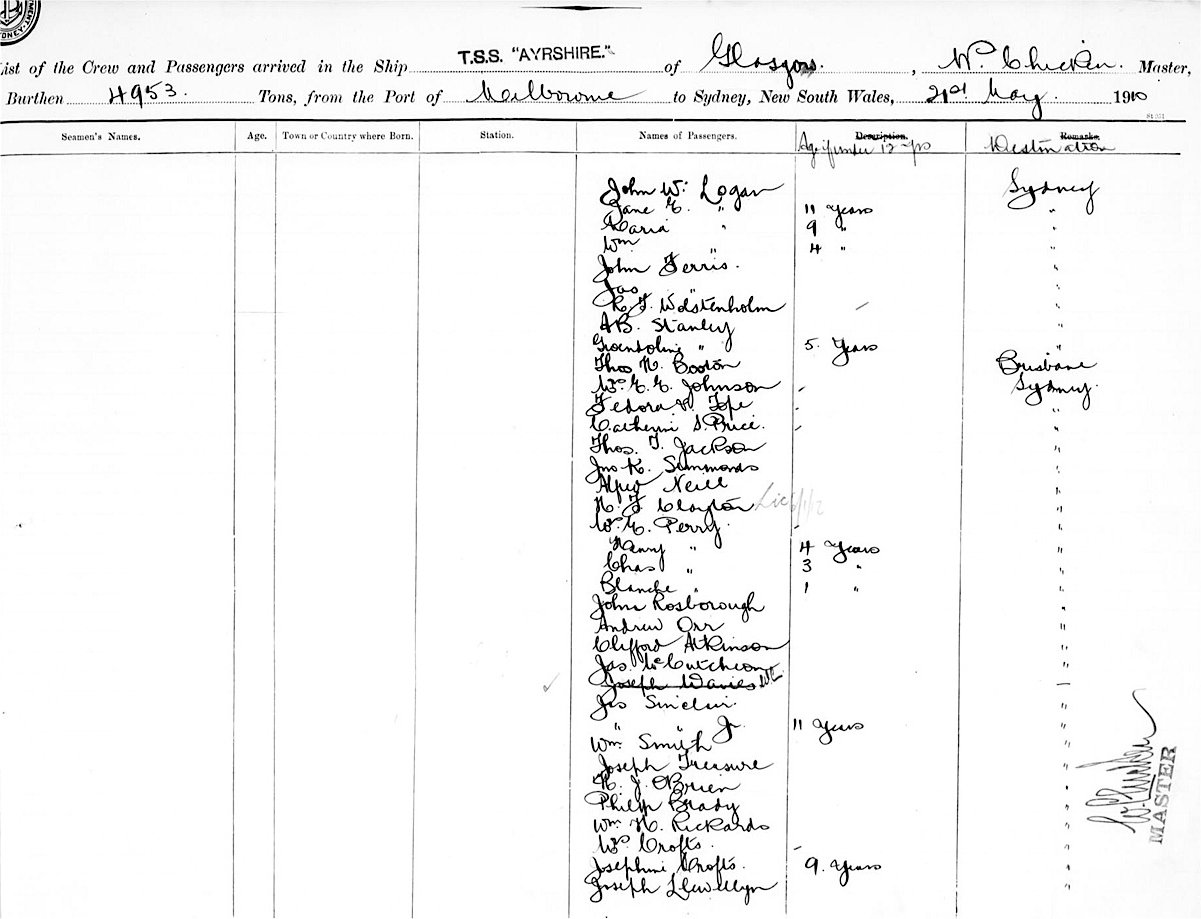 List of the Crew and Passengers arrived in the Ship T.S.S. "AYRSHIRE." of Glasgow, Wm Chicken. Master,
Burthen 4953. Tons, from the Port of Melbourne to Sydney, New South Wales, 21st May. 1910
Seamen's Names. Age. Town or Country where Born. Station. Names of Passengers. Description. Remarks.
Age if under 12 yrs Destination
John W. Logan Sydney
Jane E. " 11 Years "
Maria " 9 " "
Wm " 4 " "
John Ferris. "
Jas " "
R. J. Wolstenholm "
AB. Stanley "
Gwendoline " 5. Years "
Thos H. Booton Brisbane
Mrs E. E. Johnson Sydney.
Fedora V. Tope "
Catherine S. Price. "
Thos. J. Jackson "
Jno K. Simmonds "
Alfred Neill "
H. J. Clayton "
Mrs E. Perry. "
Henry " 4 Years "
Chas " 3 " "
Blanche " 1 " "
John Rosborough "
Andrew Orr "
Clifford Atkinson "
Jas. McCutcheon "
Joseph Davies WC —
Jas Sinclair. "
" " Jr. 11 Years "
Wm. Smith "
Joseph Treasure "
H. J. OBrien "
Philip Brady "
Wm. H. Rickards "
Mrs Crofts. "
Josephine Crofts. 9. Years "
Joseph Llewellyn "
W Chicken
MASTER